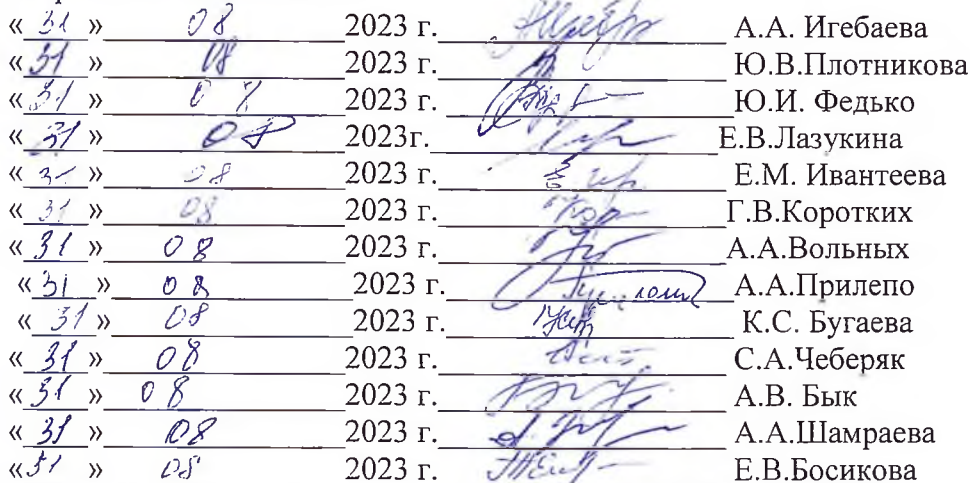 « 31 » 08 2023 г. А.А. Игебаева
« 31 » 08 2023 г. Ю.В.Плотникова
« 31 » 08 2023 г. Ю.И. Федько
« 31 » 08 2023г. Е.В.Лазукина
« 31 » 08 2023 г. Е.М. Ивантеева
« 31 » 08 2023 г. Г.В.Коротких
« 31 » 08 2023 г. А.А.Вольных
« 31 » 08 2023 г. А.А.Прилепо
« 31 » 08 2023 г. К.С. Бугаева
« 31 » 08 2023 г. С.А.Чеберяк
« 31 » 08 2023 г. А.В. Бык
« 31 » 08 2023 г. А.А.Шамраева
« 31 » 08 2023 г. Е.В.Босикова